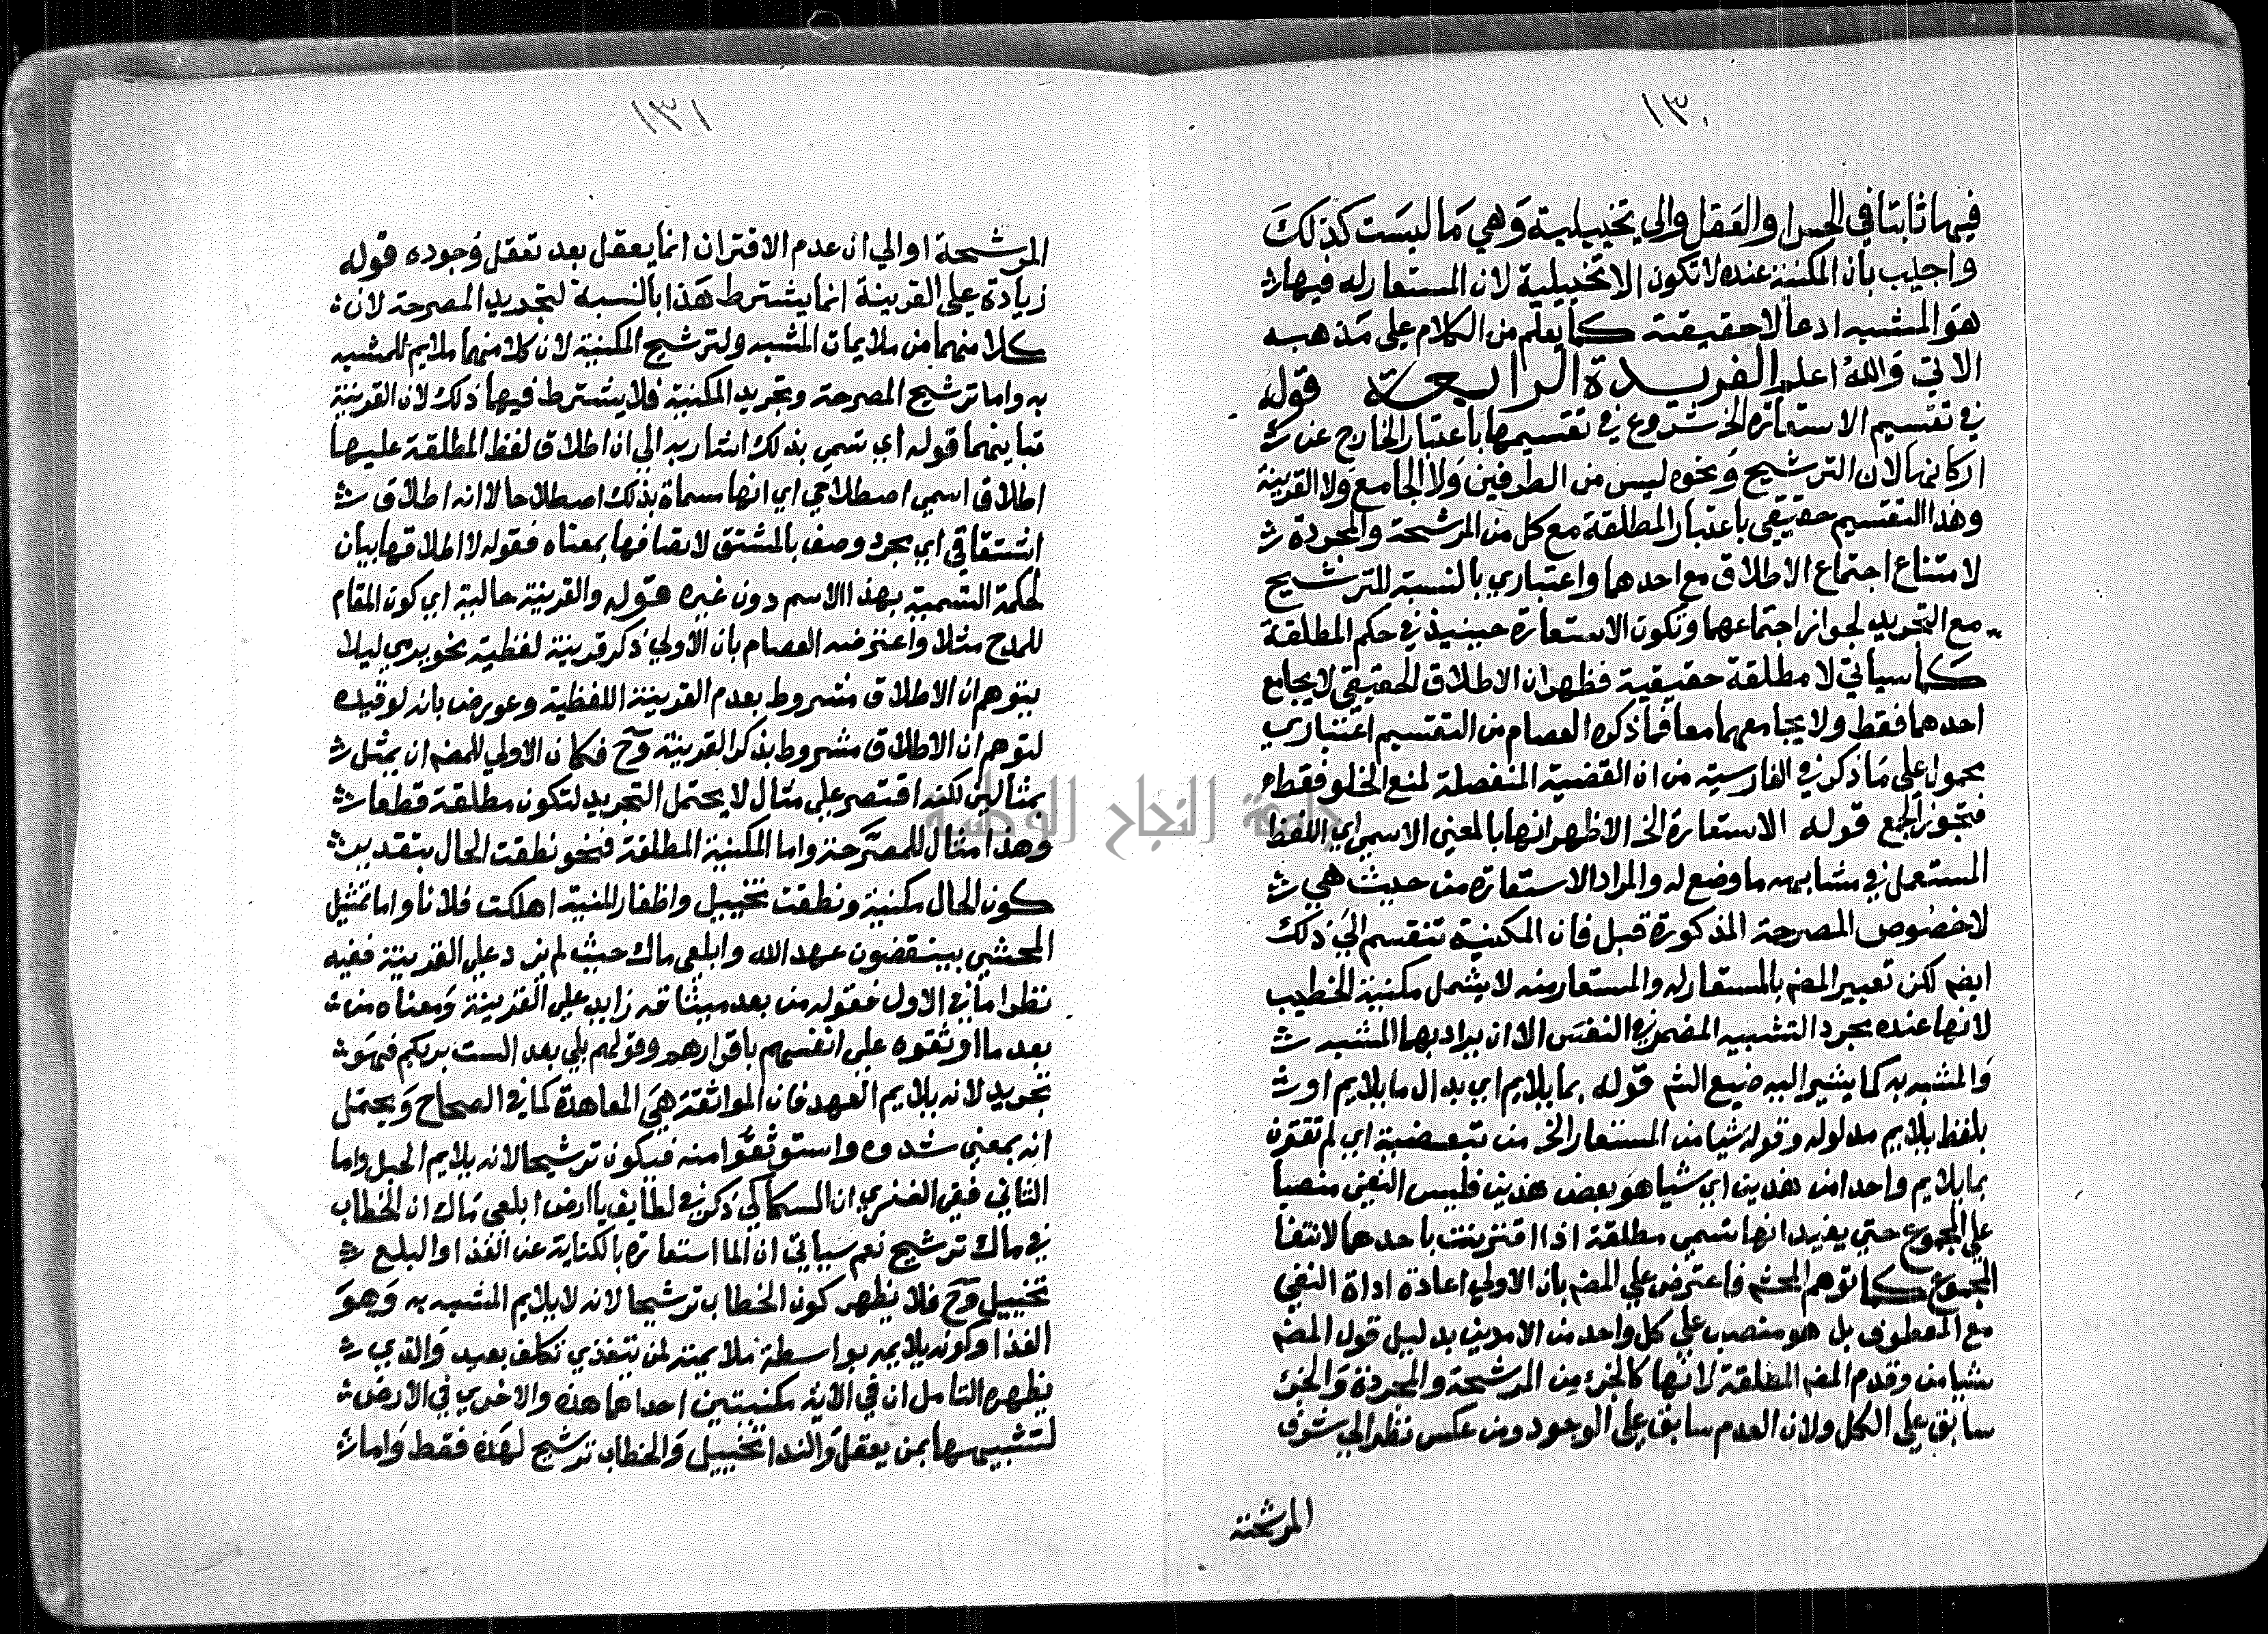 ١٣٠
فيها ثابتا في الحس او العقل والي تخييلية وهي ما ليست كذلك
واجيب بان المكنية عنده لا تكون الا تخييلية لان المستعار له فيها
هو المشبه ادعا لا حقيقة كما يعلم من الكلام علي مذهبه
الاتي والله اعلم الفريدة الرابعة قوله
في تقسيم الاستعارة الخ شروع في تقسيمها باعتبار الخارج عن
اركانها لان الترشيح ونحوه ليس من الطرفين ولا الجامع ولا القرينة
وهذا التقسيم حقيقي باعتبار المطلقة مع كل من المرشحة والمجردة
لامتناع اجتماع الاطلاق مع احدهما واعتباري بالنسبة للترشيح
مع التجريد لجواز اجتماعهما وتكون الاستعارة حينيذ في حكم المطلقة
كما سياتي لا مطلقة حقيقية فظهر ان الاطلاق الحقيقي لا يجامع
احدهما فقط ولا يجامعهما معا فما ذكره العصام من التقسيم اعتباري
محمول علي ما ذكر في الفارسية من ان القضية المنفصلة لمنع الخلو فقط
فتجوز الجمع قوله الاستعارة الخ الاظهر انها بالمعني الاسمي اي اللفظ
المستعمل في مشابه ما وضع له والمراد الاستعارة من حديث هي
لا خصوص المصرحة المذكورة قبل فان المكنية تنقسم الي ذلك
ايضم لكن تعبير المضم بالمستعار له والمستعار منه لا يشمل مكنية الخطيب
لانها عنده مجرد التشبيه المضمر في النفس الا ان يراد بهما المشبه
والمشبه به كما يشير اليه صنيع الشم قوله بما يلايم اي بدال ما يلايم او
بلفظ يلايم مدلوله وقوله شيا من المستعار الخ من تبعيضية اي لم تقترن
بما يلايم واحدا من هذين اي شيا هو بعض هذين فليس النفي منصبا
علي المجموع حتي يفيد انها تسمي مطلقة اذا اقترنت باحدهما لانتفا
المجموع كما توهم المحشم فاعترض علي المضم بان الاولي اعادة اداة النفي
مع المعطوف بل هو منصب علي كل واحد من الامرين بدليل قول المضم
شيا من وقدم المضم المطلقة لانها كالجزء من المرشحة والمجردة والجزء
سابق علي الكل ولان العدم سابق علي الوجود ومن عكس نظر الي شرف
المرشحة
١٣١
المرشحة او الي ان عدم الاقتران انما يعقل بعد تعقل وجوده قوله
زيادة علي القرينة انما يشترط هذا بالنسبة لتجريد المصرحة لان
كلا منهما من ملايمات المشبه ولترشيح المكنية لان كلا منهما ملايم للمشبه
به واما ترشيح المصرحة وتجريد المكنية فلا يشترط فيهما ذلك لان القرينة
تباينهما قوله اي تسمي بذلك اشار به الي ان اطلاق لفظ المطلقة عليها
اطلاق اسمي اصطلاحي اي انها مسماة بذلك اصطلاحا لا انه اطلاق
اشتقاقي اي مجرد وصف بالمشتق لاتصافها بمعناه فقوله لاطلاقها بيان
لحكمة التسمية بهذا الاسم دون غيره قوله والقرينة حالية اي كون المقام
للمدح مثلا واعترضه العصام بان الاولي ذكر قرينة لفظية نحو يرمي ليلا
يتوهم ان الاطلاق مشروط بعدم القرينة اللفظية وعورض بانه لو قيده
لتوهم ان الاطلاق مشروط بذكر القرينة وح فكان الاولي للمضم ان يمثل
بمثالين لكنه اقتصر علي مثال لا يحتمل التجريد لتكون مطلقة قطعا
وهذا مثال للمصرحة واما المكنية المطلقة فنحو نطقت الحال بتقدير
كون الحال مكنية ونطقت تخييل واظفار المنية اهلكت فلانا واما تمثيل
المحشي بينقضون عهد الله وابلعي ماك حيث لم يزد علي القرينة ففيه
نظر اما في الاول فقوله من بعد ميثاقه زايد علي القرينة ومعناه من
بعد ما اوثقوه علي انفسهم باقرارهم وقولهم بلي بعد الست بربكم فهو
تجريد لانه يلايم العهد فان المواثقة هي المعاهدة كما في الصحاح ويحتمل
انه بمعني شدوه واستوثقوا منه فيكون ترشيحا لانه يلايم الحبل واما
الثاني ففي الفنري ان السكاكي ذكر في لطايف يا ارض ابلعي ماك ان الخطاب
في ماك ترشيح نعم سياتي ان الما استعارة بالكناية عن الغذا والبلع
تخييل وح فلا يظهر كون الخطاب ترشيحا لانه لا يلايم المشبه به وهو
الغذا وكونه يلايمه بواسطة ملايمته لمن يتغذي تكلف بعيد والذي
يظهره التامل ان في الاية مكنيتين احداهما هذه والاخري في الارض
لتشبيهها بمن يعقل والندا تخييل والخطاب ترشيح لهذه فقط واما
جامعة النجاح الوطنية